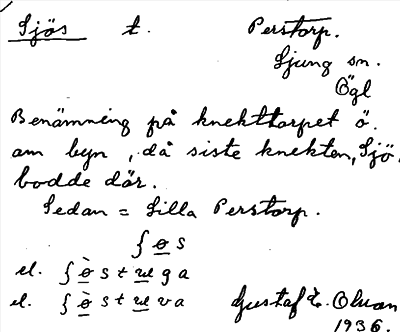 Sjös t. Perstorp.
Ljung sn.
Ögl
Benämning på knekttorpet ö.
om byn, då siste knekten, Sjö,
bodde där.
Sedan = Lilla Perstorp.
ʃ ɵ s
el. ʃ ɵ̀ s t æ g a
el. ʃ ɵ̀ s t æ v a Gustaf
1936.